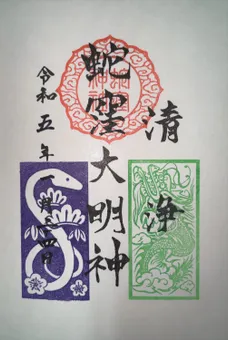 清浄
蛇窪大明神
令和五年一月